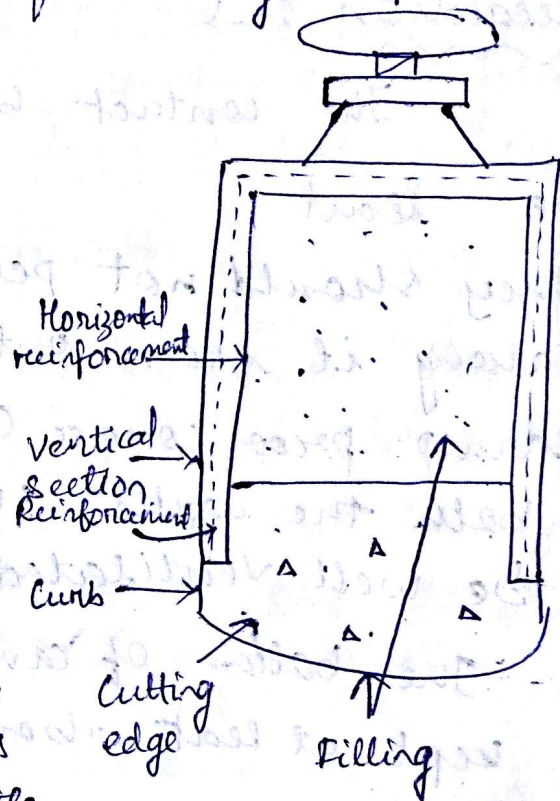 Horizontal
reinforcement
Vertical
section
Reinforcement
Curb
Cutting
edge
Filling